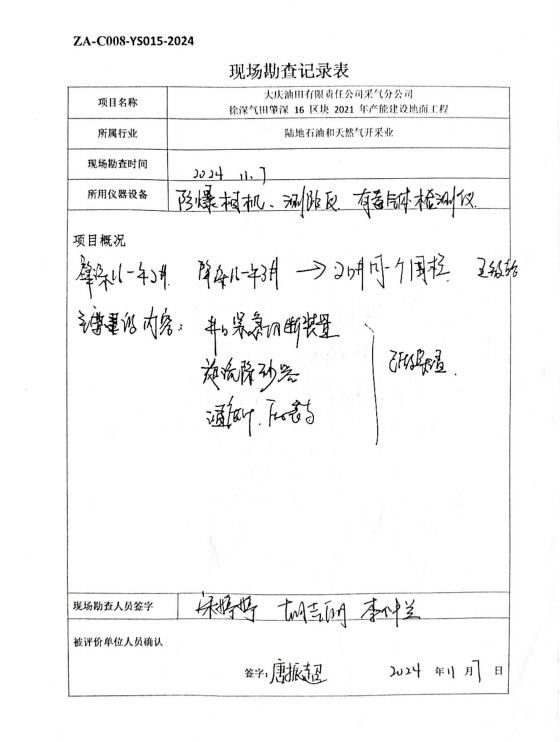 ZA-C008-YS015-2024
现场勘查记录表
项目名称
大庆油田有限责任公司采气分公司
徐深气田肇深 16 区块 2021 年产能建设地面工程
所属行业
陆地石油和天然气开采业
现场勘查时间
2024 11.7
所用仪器设备
防爆相机、测距仪 有毒气体检测仪
项目概况
肇深16-平2井 肇深16-平3井 → 2口井同一个围栏
主要建设内容：
井口紧急切断装置
旋流除砂器
现场勘查人员签字
被评价单位人员确认
签字：唐振超
2024 年 11 月 7 日